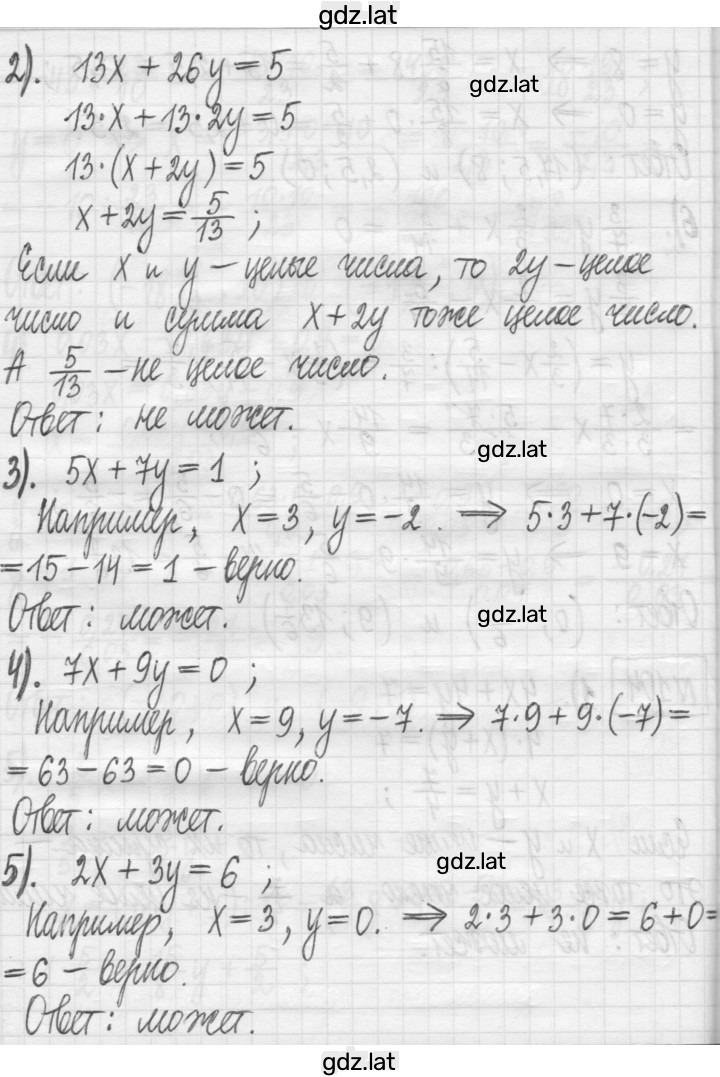 gdz.lat
2). 13x + 26y = 5
gdz.lat
13·x + 13·2y = 5
13·(x + 2y) = 5
x + 2y = 5/13 ;
Если x и y – целые числа, то 2y – целое
число и сумма x + 2y тоже целое число.
А 5/13 – не целое число.
Ответ: не может.
gdz.lat
3). 5x + 7y = 1 ;
Например, x = 3, y = -2. ⇒ 5·3 + 7·(-2) =
= 15 - 14 = 1 – верно.
Ответ: может.
gdz.lat
4). 7x + 9y = 0 ;
Например, x = 9, y = -7. ⇒ 7·9 + 9·(-7) =
= 63 - 63 = 0 – верно.
Ответ: может.
5). 2x + 3y = 6 ;
gdz.lat
Например, x = 3, y = 0. ⇒ 2·3 + 3·0 = 6 + 0 =
= 6 – верно.
Ответ: может.
gdz.lat